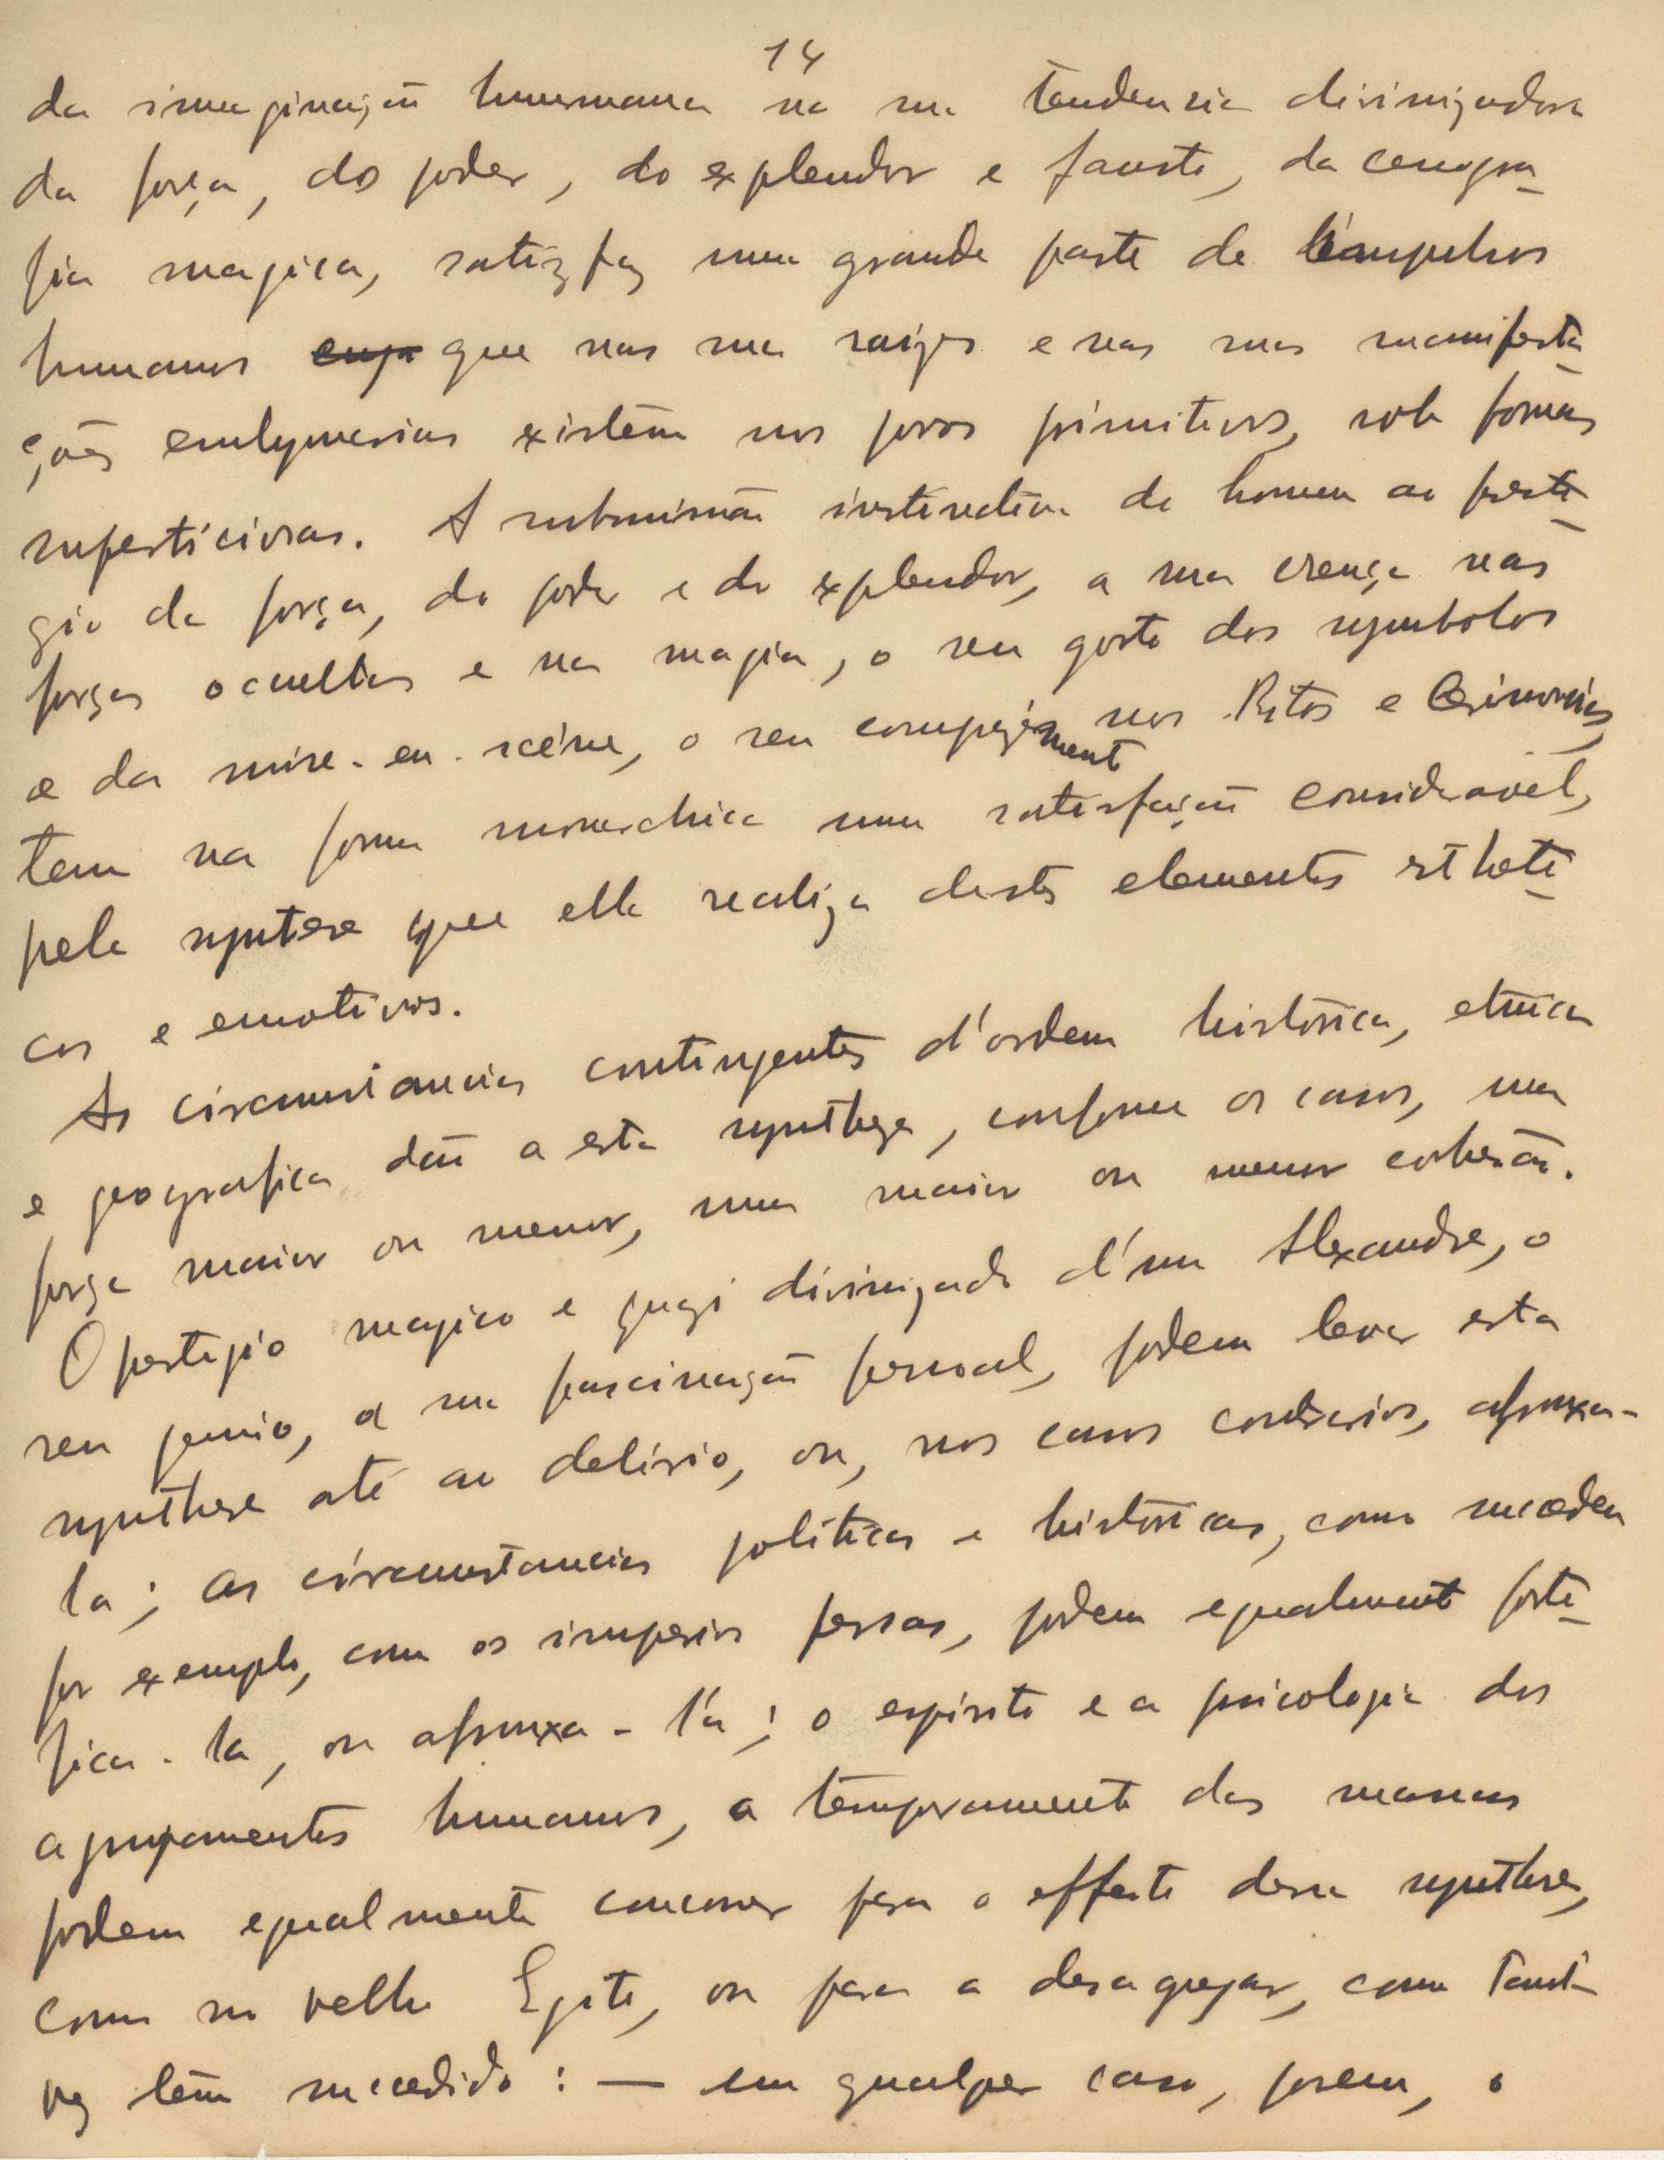 14
da imaginação humana na sua tendencia divinizadora
da força, do poder, do explendor e fausto, da cenogra-
fia magica, satisfaz uma grande parte de impulsos
humanos que nas sua raizes e nas suas manifesta-
ções existem nos povos primitivos, sob formas
supersticiosas. A submissão instinctiva do homem ao presti-
gio da força, do poder e do explendor, a sua crença nas
forças occultas e na magia, o seu gosto dos symbolos
e da mise-en-scéne, o seu nos Ritos e Cerimonias,
tem na forma monarchica uma satisfação consideravel,
pela syntese que ella realiza destes elementos estheti-
cos e emotivos.
As circumstancias contingentes d'ordem histórica, etnica
e geografica dão a esta synthese, conforme os casos, uma
força maior ou menor, uma maior ou menor cohesão.
O prestigio magico e quazi divinizado d'um Alexandre, o
seu genio, a sua fascinação pessoal, podem levar esta
synthese até ao delirio, ou, nos casos contrarios, afrouxa-
la; as circumstancias politicas e históricas, como succedeu
por exemplo, com os imperios persas, podem egualmente forti-
fica-la, ou afrouxa-la; o espirito e a psicologia dos
agrupamentos humanos, o temperamento das massas
podem egualmente concorrer para o effeito dessa synthese,
como no velho Egito, ou para a desagregar, como tanta
vez têm succedido: — em qualquer caso, porem, o